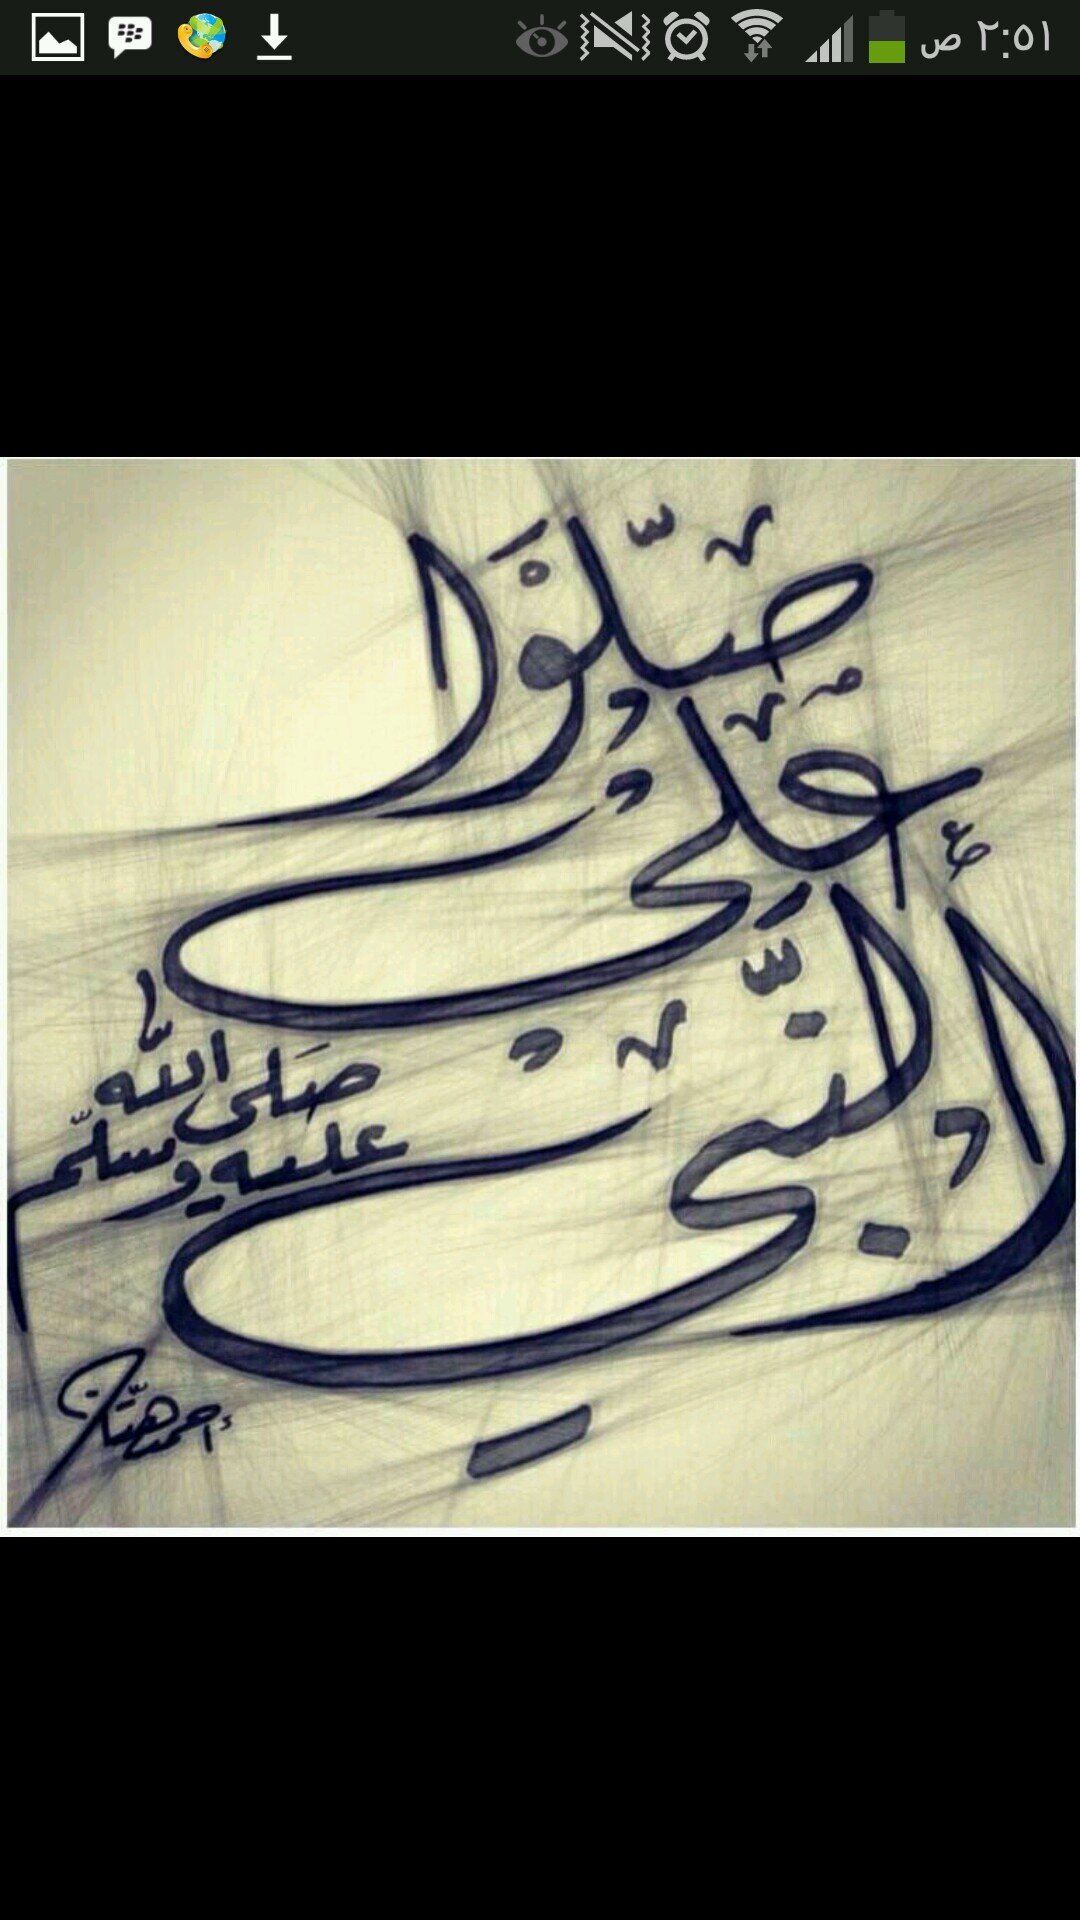 ٢:٥١ ص
صَلّوْا
على
النبّي
صَلى اللّه
عليه وسلّم